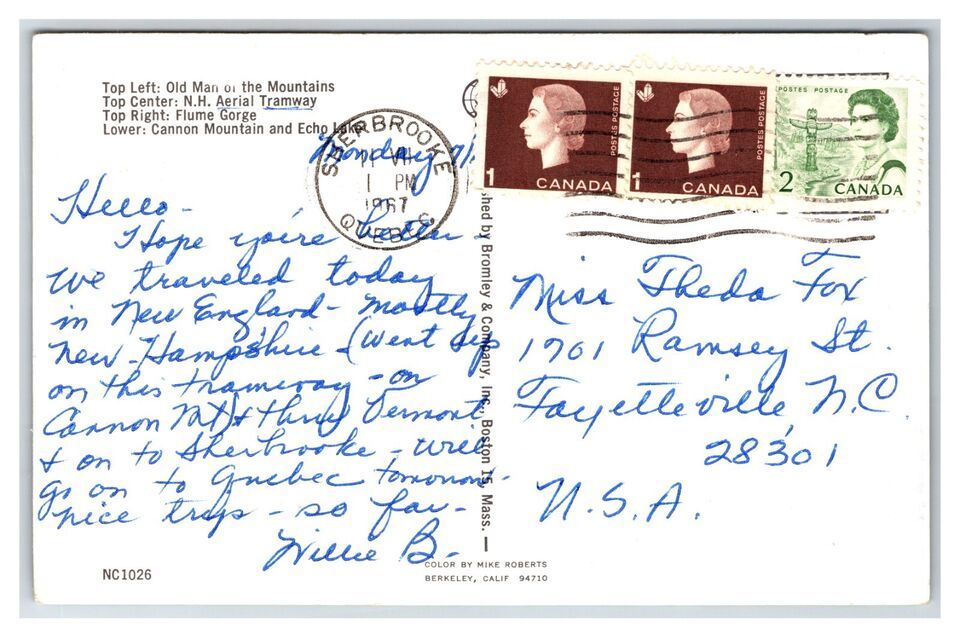 Top Left: Old Man of the Mountains
Top Center: N.H. Aerial Tramway
Top Right: Flume Gorge
Lower: Cannon Mountain and Echo Lake
SHERBROOKE
VII
1 PM
1967
QUEBEC
1 CANADA
POSTES POSTAGE
1 CANADA
POSTES POSTAGE
POSTES POSTAGE
2 CANADA
Monday
Hello -
Hope you're better -
We traveled today
in New England - mostly
New-Hampshire - (Went up
on this tramway - on
Cannon Mt) & thru Vermont
& on to Sherbrooke - will
go on to Quebec tomorrow -
nice trip - so far -
Willie B.
shed by Bromley & Company, Inc., Boston 15, Mass.
Miss Theda Fox
1701 Ramsey St.
Fayetteville N.C.
28301
U.S.A.
NC1026
COLOR BY MIKE ROBERTS
BERKELEY, CALIF 94710